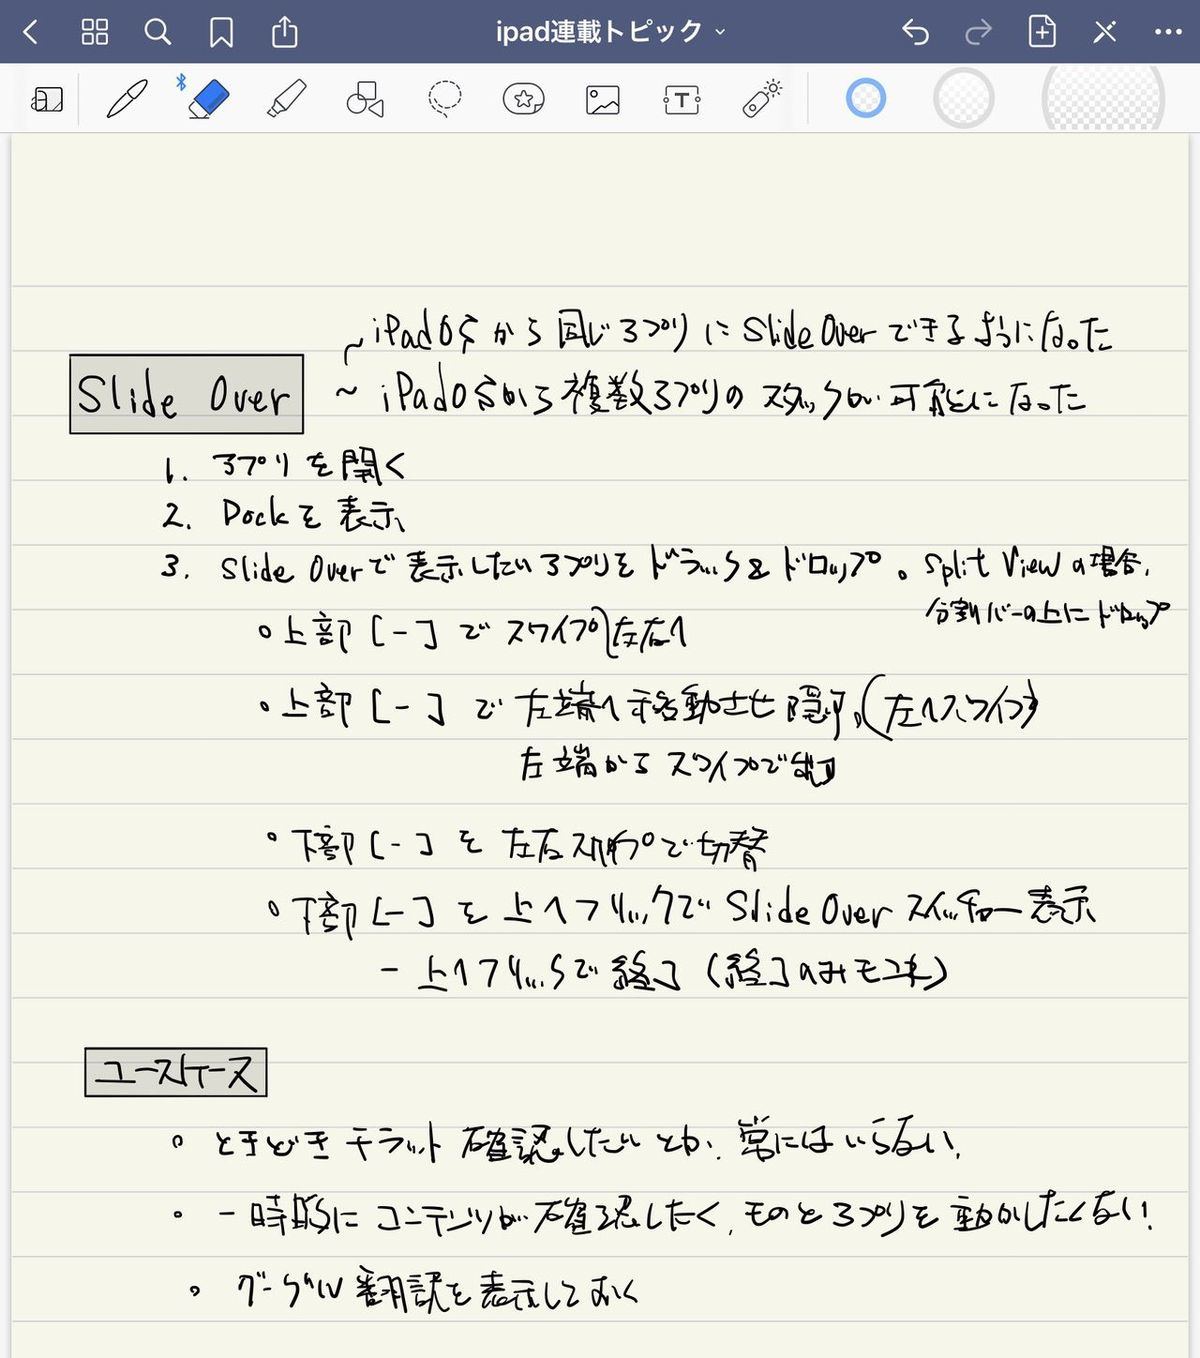 ipad連載トピック
~ iPadOSから同じアプリにSlide Overできるようになった
Slide Over
~ iPadOSから複数アプリのスタックが可能になった
1. アプリを開く
2. Dockを表示
3. Slide Overで表示したいアプリをドラッグ&ドロップ。Split Viewの場合,
分割バーの上にドロップ
○上部[-]でスワイプ 左右へ
○上部[-]で左端へ移動させ隠す。(左へスワイプ)
左端からスワイプで
○下部[-]を左右スワイプで切替
○下部[-]を上へフリックでSlide Overスイッチャー表示
- 上へフリックで終了(終了のみ
ユースケース
○ときどきチラット確認したいとか、常にはいらない.
○一時的にコンテンツが確認したく、もとのアプリを動かしたくない.
○グーグル翻訳を表示しておく